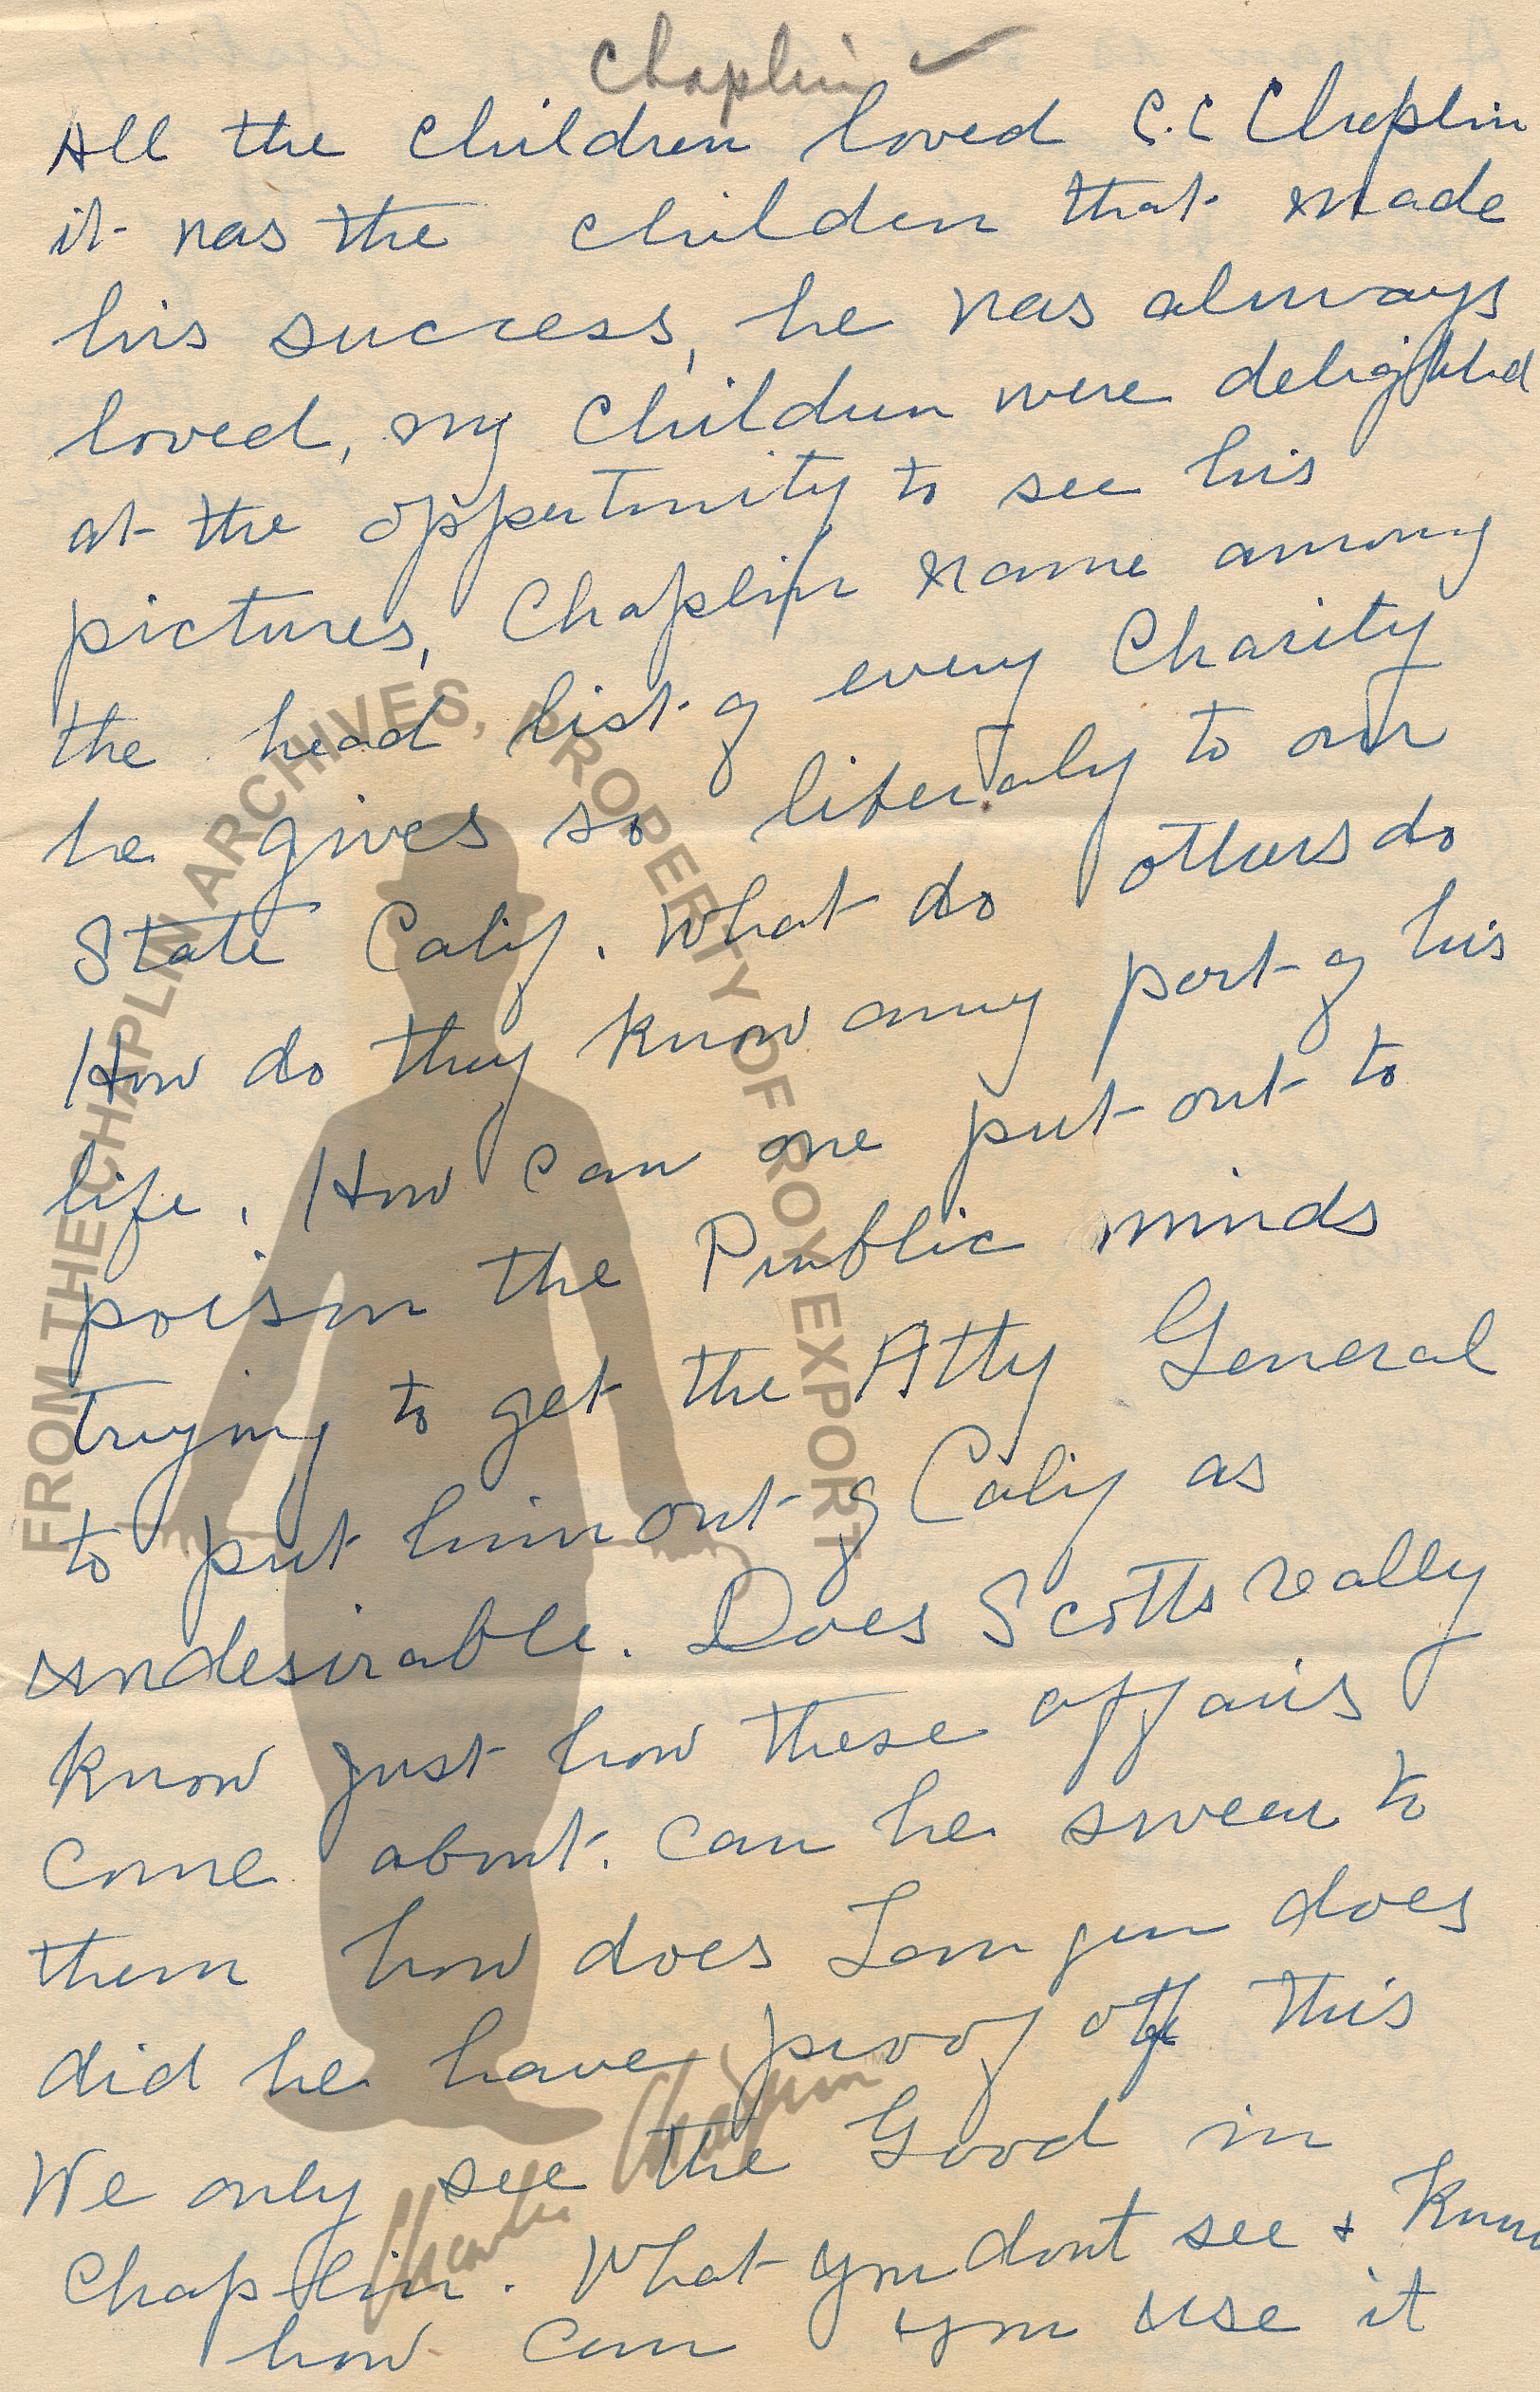 Chaplin ✓
All the Children loved C.C Chaplin
it was the children that made
his success, he was always
loved, my Children were delighted
at the oppertunity to see his
pictures, Chaplin name among
the head list of every Charity
he gives so literaly to our
State Calif. What do others do
How do they know any part of his
life. How can one put out to
poison the Public minds
trying to get the Atty General
to put him out of Calif as
undesirable. Does Scotts really
know just how these affairs
come about. can he swear to
them how does does
did he have proof of this
We only see the Good in
Chaplin. What you dont see + Know
how can you use it
FROM THE CHAPLIN ARCHIVES, PROPERTY OF ROY EXPORT
Charlie Chaplin